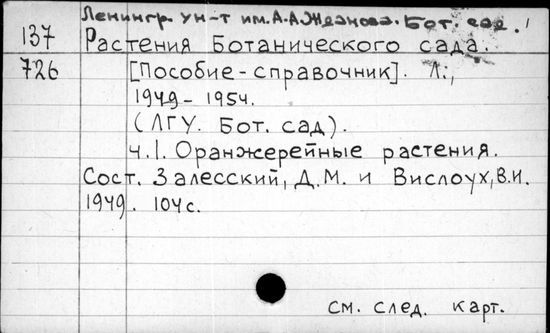 Ленингр. ун-т им. А.А. Жданова. Бот. сад. 1
137 Растения Ботанического сада.
726 [Пособие-справочник]. Л.,
1949-1954.
(ЛГУ. Бот. сад).
ч.1. Оранжерейные растения.
Сост. Залесский, Д.М. и Вислоух, В.И.
1949. 104 с.
см. след. карт.